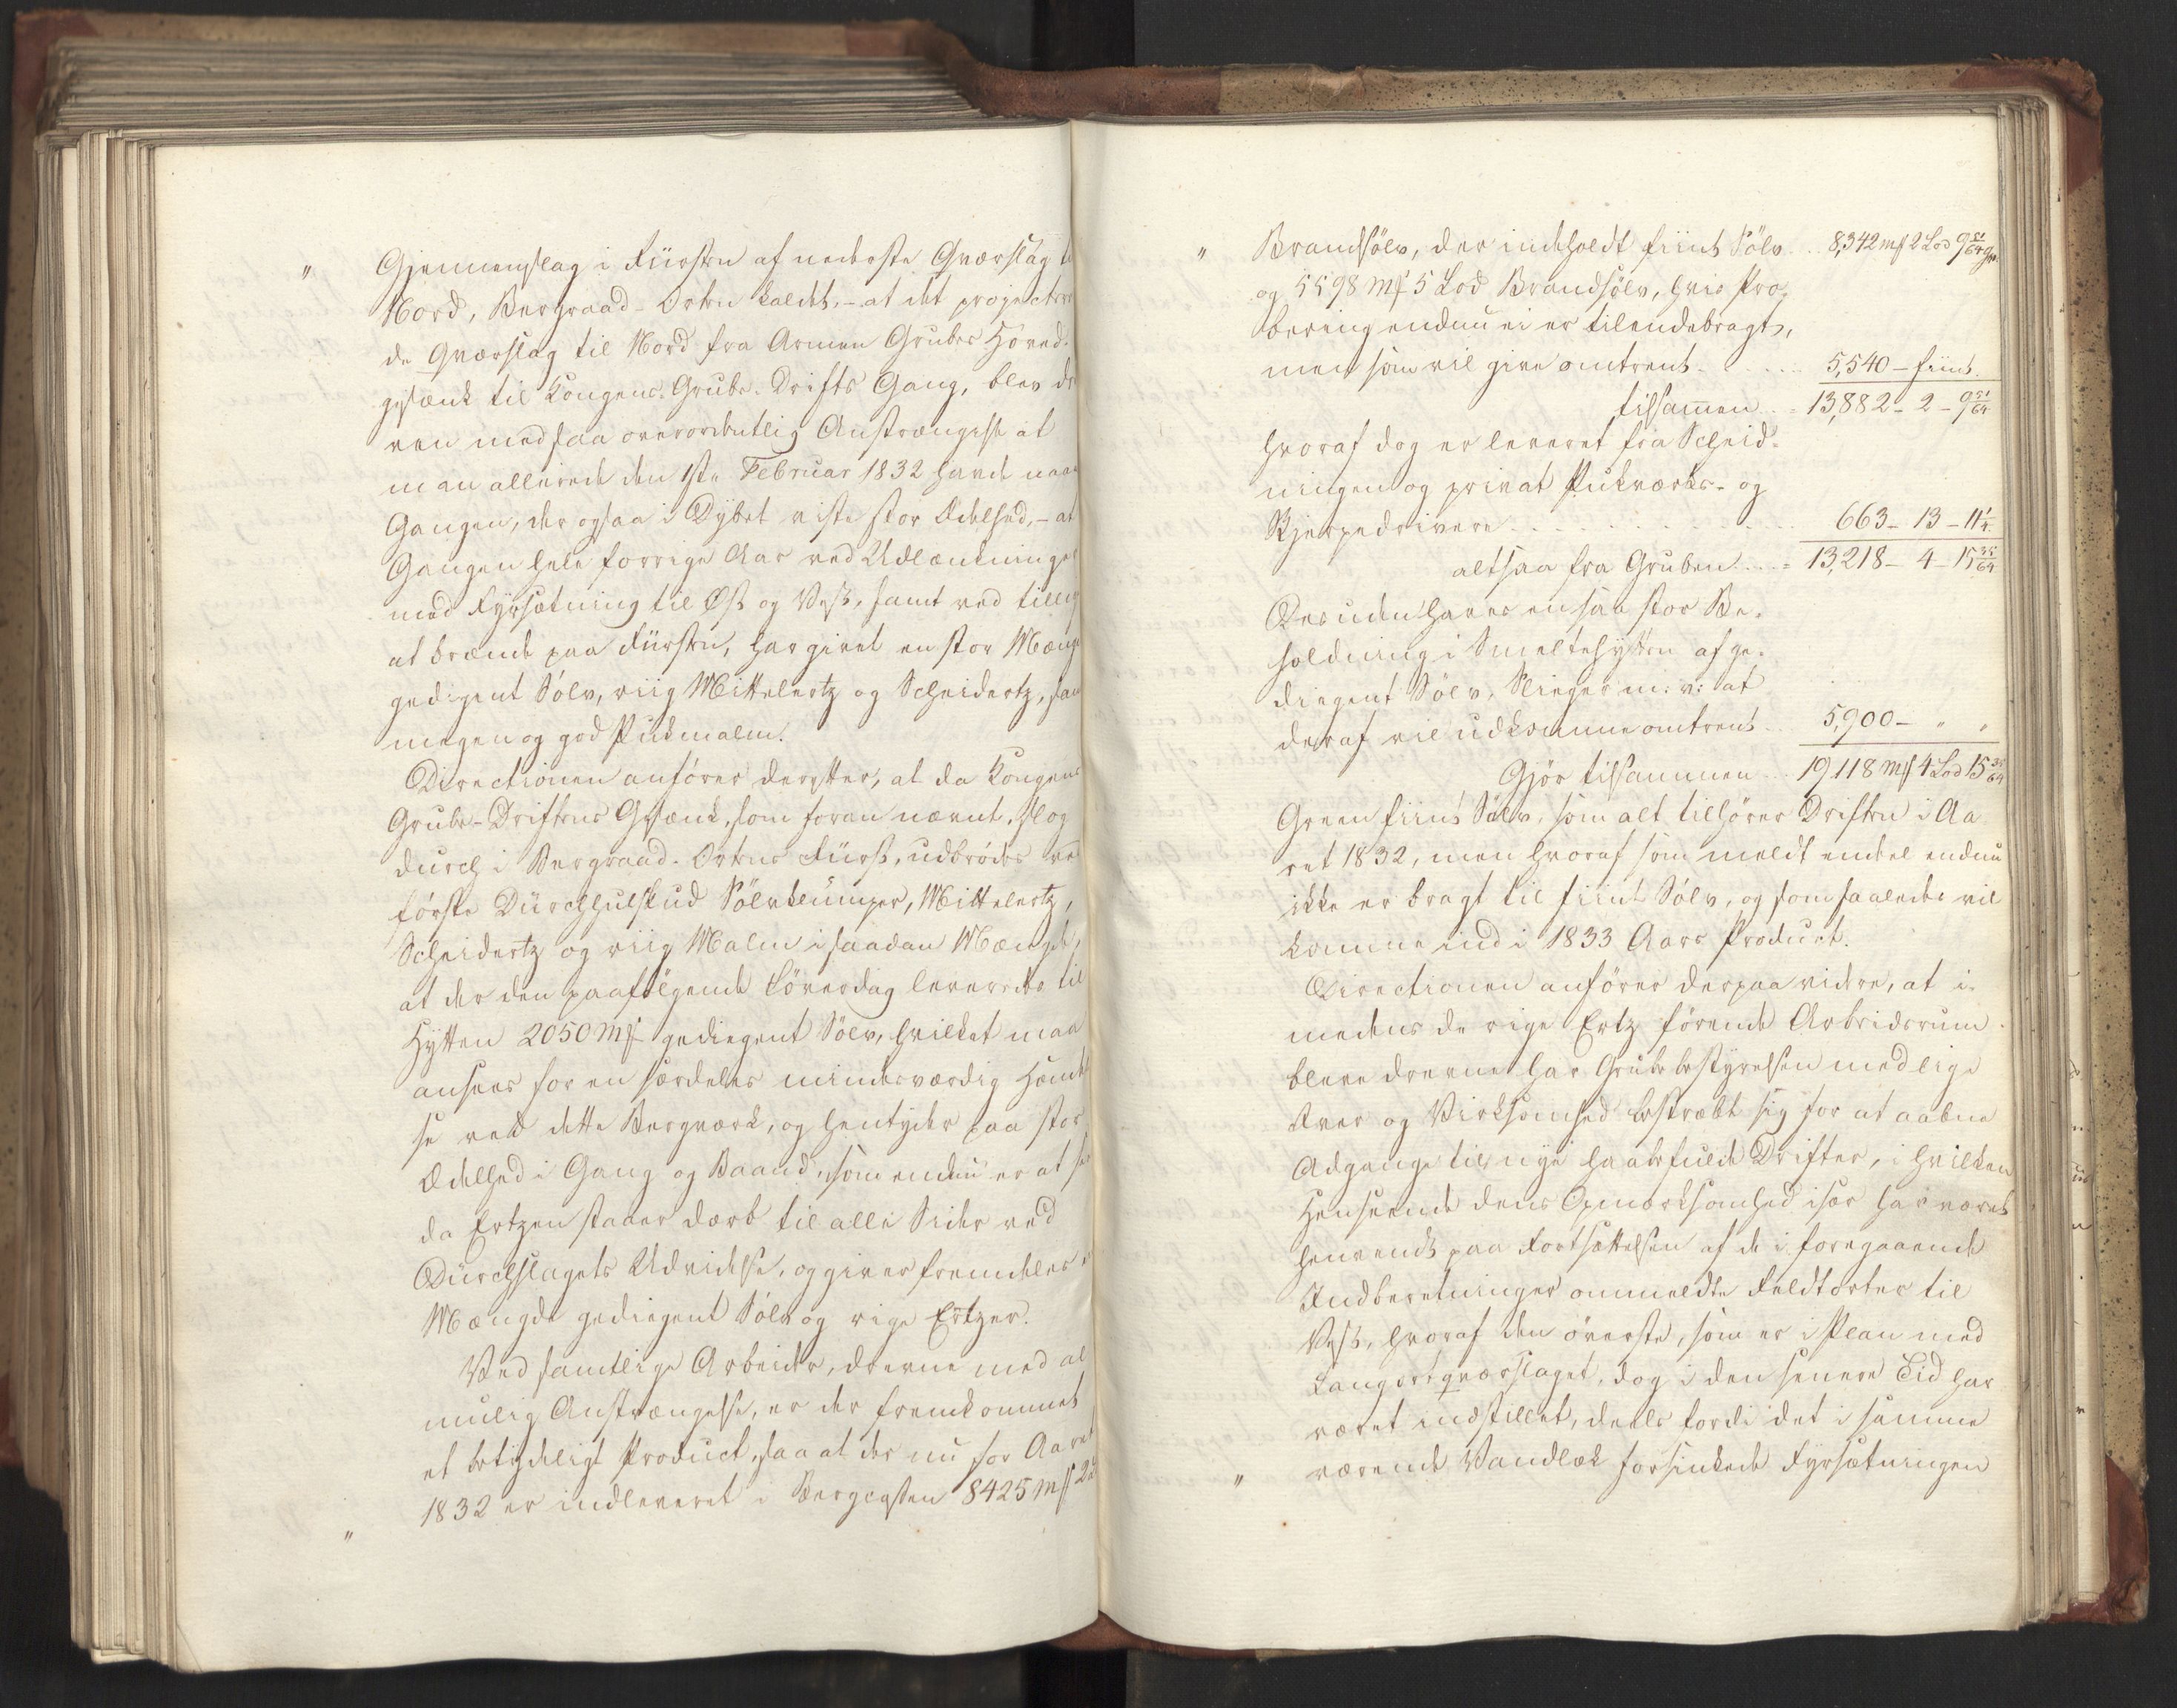 " Gjennemslag i Fürsten af nederste Qværslag t
Nord, Bergraad-Orten kaldet, - at det projectere
de Qværslag til Nord fra Armen Grubes Hoved-
gesænk til Kongens-Grube-Drifts Gang, blev dr
ven med saa overordentlig Anstrængelse at
man allerede den 1ste Februar 1832 havde naaet
Gangen, der ogsaa i Dybet viste stor Ædelhed, - at
Gangen hele forrige Aar ved Udlænkninger
med Fyrsætning til Øst og Vest, samt ved tillige
at brænde paa Fürsten, har givet en stor Mængde
gedigent Sølv, riig Mittelertz og Scheidertz, sam
megen og god Pukmalm.
Directionen anfører derefter, at da Kongens
Grube-Driftens Gesænk, som foran nævnt, slog
durch i Bergraad-Ortens Fürst, udbrødes ved
første Dürchhulskud Sølvklumper, Mittelertz,
Scheidertz og riig Malm i saadan Mængde,
at der den paafølgende Løverdag leveredes til
Hytten 2050 Mk gediegent Sølv, hvilket maa
ansees for en særdeles mindeværdig Hændel
se ved dette Bergværk, og hentyder paa stor
Ædelhed i Gang og Baand, som endnu er at se
da Ertzen staaer dærb til alle Sider ved
Dürchslagets Udvidelse, og giver fremdeles
Mængde gediegent Sølv og rige Ertzer.
Ved samtlige Arbeider, drevne med al
mulig Anstrængelse, er der fremkommet
et betydeligt Product, saa at der nu for Aaret
1832 er indleveret i Bergcassen 8425 Mk 2
"
" Brandsølv, der indeholdt fiint Sølv .. 8,342 Mk 2 Lod 9 51/64 Gr.
og 5598 Mk 5 Lod Brandsølv, hvis Pro-
bering endnu ei er tilendebragt,
men som vil give omtrent . . . . 5,540 - fiint.
tilsamen .. = 13,882 - 2 - 9 51/64
hvoraf dog er leveret fra Scheid-
ningen og privat Pukværks- og
Skjerpedrivere . . . . . . . 663 - 13 - 11 1/4
altsaa fra Gruben . . . = 13,218 - 4 - 15 35/64
Desuden haves en saa stor Be-
holdning i Smeltehytten af ge-
diegent Sølv, Slieger m: v: at
deraf vil udkomme omtrent .. 5,900 - " "
Gjør tilsammen .. 19118 Mk 4 Lod 15 35/64
Green fiint Sølv, som alt tilhører Driften i Aa
ret 1832, men hvoraf som meldt endel endnu
ikke er bragt til fiint Sølv, og som saaledes vil
komme ind i 1833 Aars Product.
Directionen anfører derpaa videre, at i-
medens de rige Ertz førende Arbeidsrum
bleve drevne har Grubebestyrelsen med lige
Iver og Virksomhed bestræbt sig for at aabne
Adgange til nye haabefulde Drifter, i hvilken
Henseende dens Opmærksomhed især har været
henvendt paa Fortsættelsen af de i foregaaende
Indberetninger ommeldte Feldtorter til
Vest, hvoraf den øverste, som er i Plan med
Langortqværslaget, dog i den senere Tid har
været indstillet, deels fordi det i samme
" værende Vandlæk forsinkede Fyrsætningen